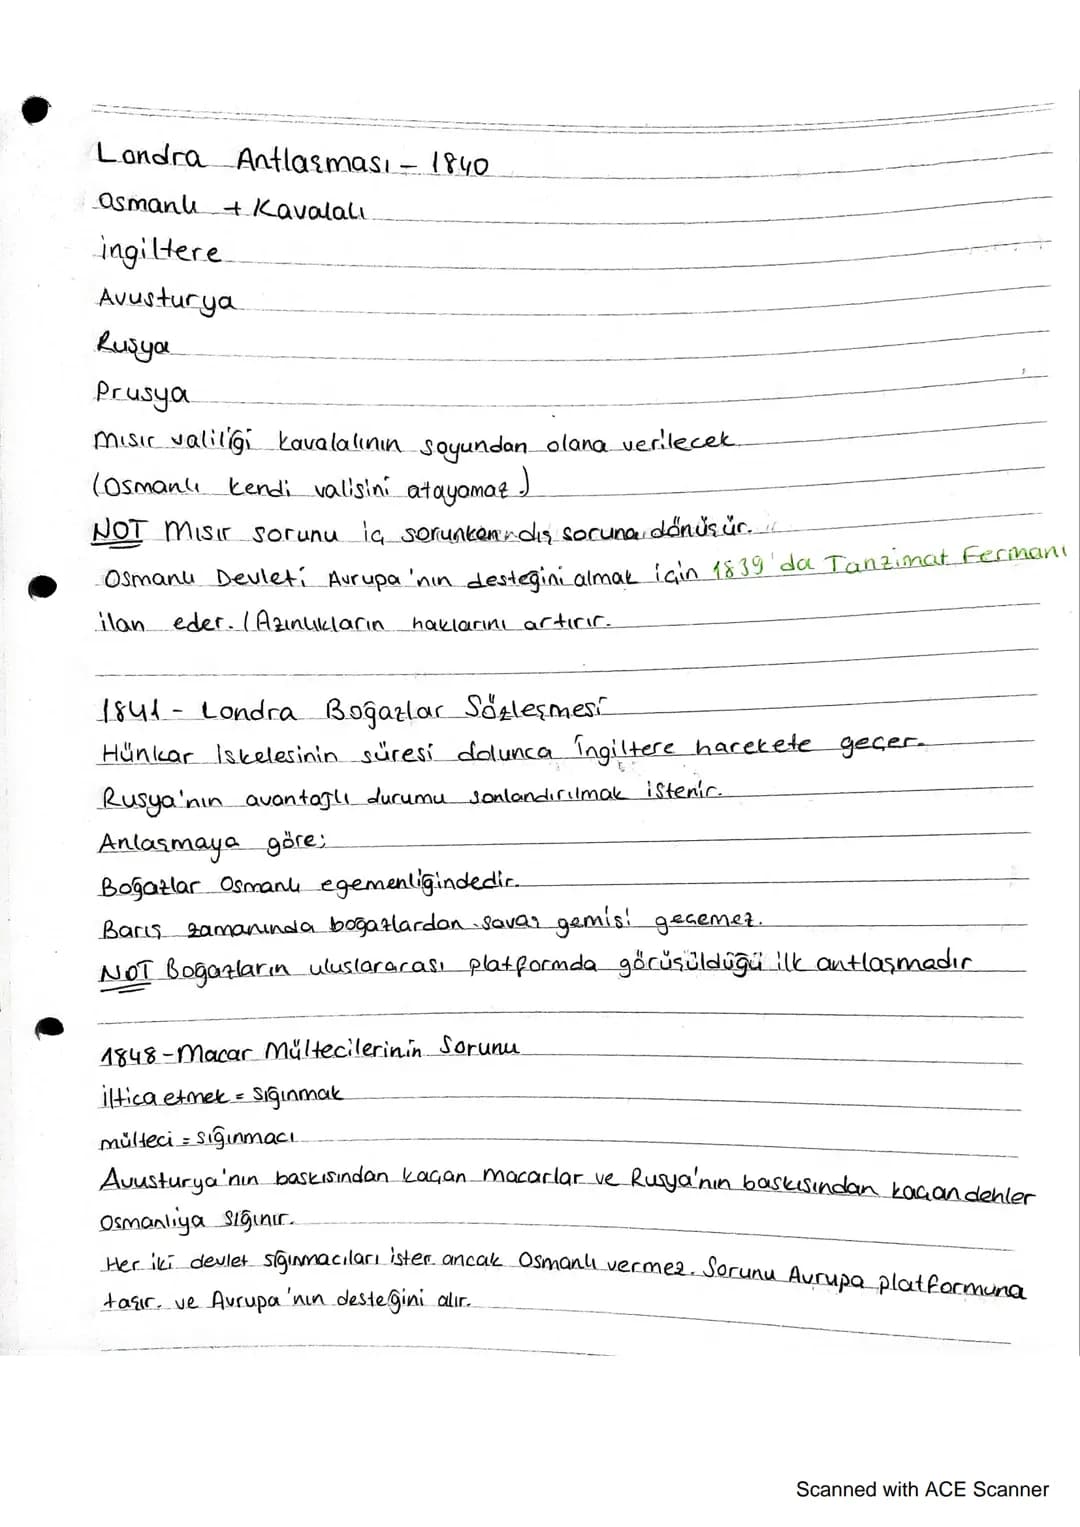 Londra Antlaşması - 1840
Osmanlı + Kavalalı
ingiltere
Avusturya
Rusya
Prusya
Mısır valiliği kavalalının soyundan olana verilecek.
(Osmanlı kendi valisini atayamaz)
NOT Mısır sorunu iç sorunken dış soruna dönüşür.
Osmanlı Devleti Avrupa'nın desteğini almak için 1839'da Tanzimat Fermanı
ilan eder. (Azınlıkların haklarını artırır.
1841 - Londra Boğazlar Sözleşmesi
Hünkar İskelesinin süresi dolunca İngiltere harekete geçer.
Rusya'nın avantajlı durumu sonlandırılmak istenir.
Anlaşmaya göre;
Boğazlar Osmanlı egemenliğindedir.
Barış zamanında boğazlardan savaş gemisi geçemez.
NOT Boğazların uluslararası platformda görüşüldüğü ilk antlaşmadır
1848 - Macar Mültecilerinin Sorunu
iltica etmek = sığınmak
mülteci = sığınmacı
Avusturya'nın baskısından kaçan macarlar ve Rusya'nın baskısından kaçan dehler
Osmanlıya sığınır.
Her iki devlet sığınmacıları ister ancak Osmanlı vermez. Sorunu Avrupa platformuna
taşır. ve Avrupa'nın desteğini alır.
Scanned with ACE Scanner